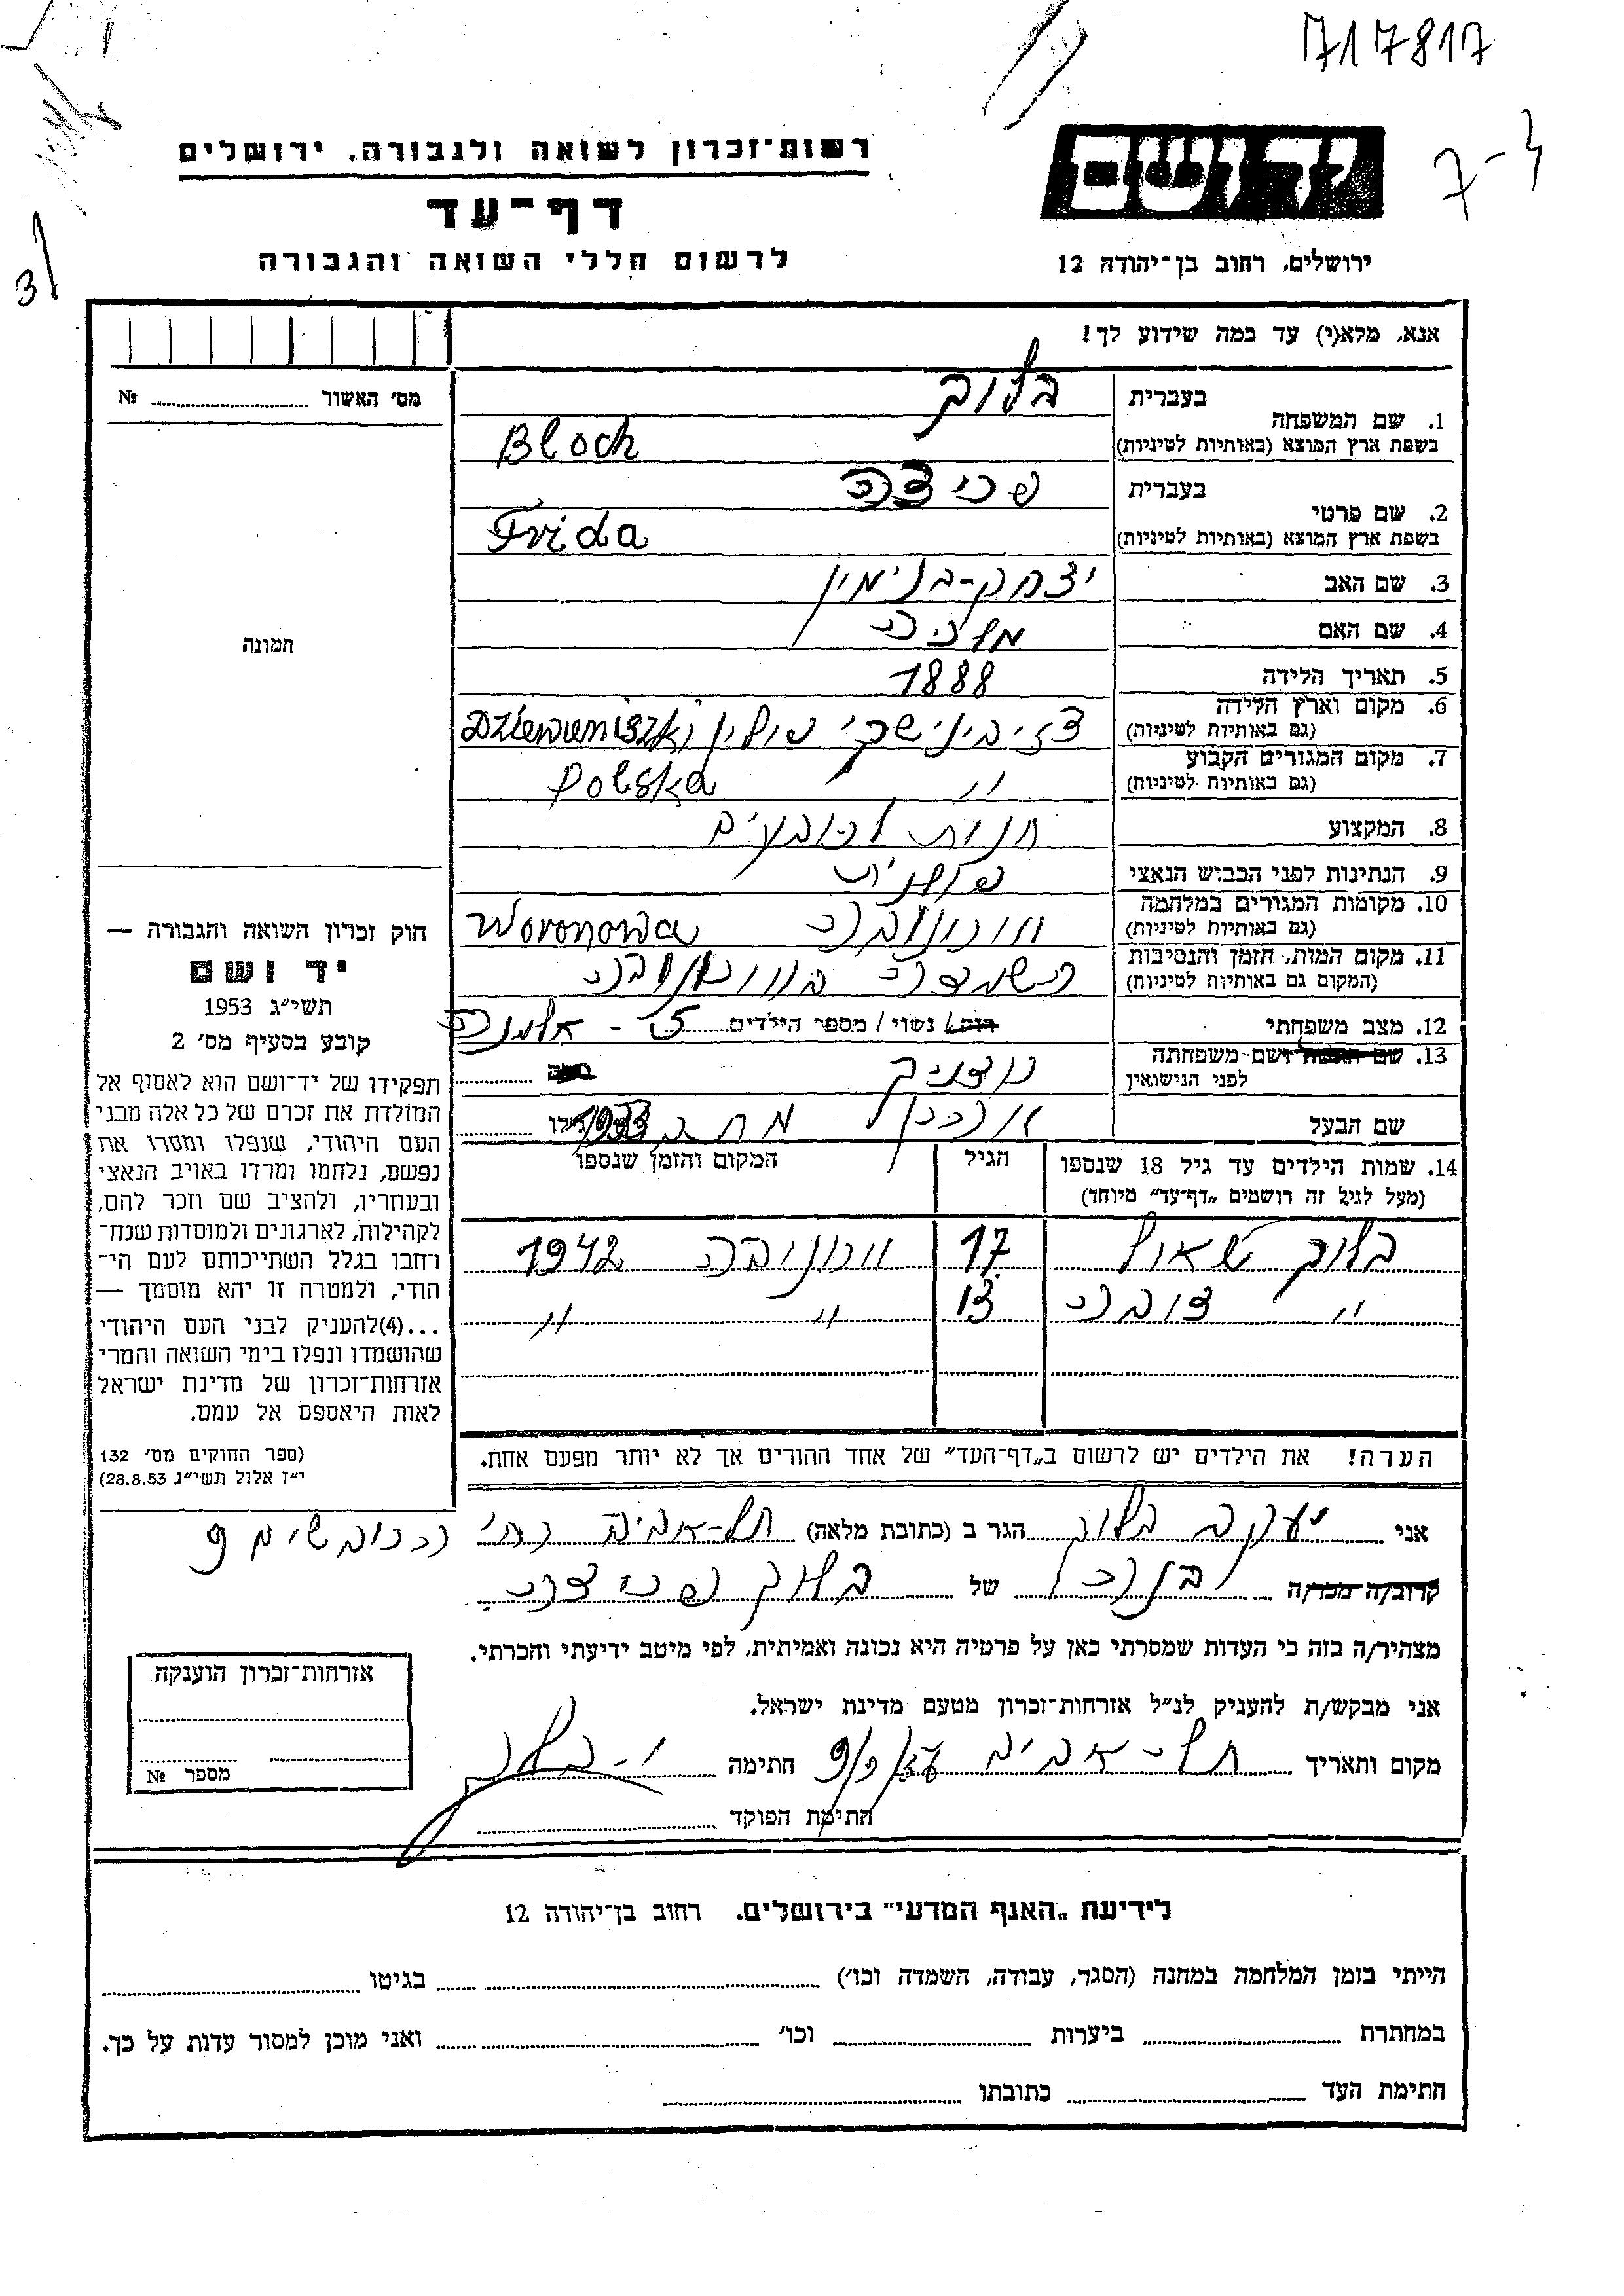 717817
7-
רשות־זכרון לשואה ולגבורה. ירושלים
דף־עד
לרשום חללי השואה והגבורה
ידושם
ירושלים, רחוב בן־יהודה 12
3
אנא, מלא(י) עד כמה שידוע לך!
מס׳ האשור № 
1. שם המשפחה
בעברית בלוך
בשפת ארץ המוצא (באותיות לטיניות) Bloch
2. שם פרטי
בעברית פרידה
בשפת ארץ המוצא (באותיות לטיניות) Frida
3. שם האב יצחק-בנימין
4. שם האם
5. תאריך הלידה 1888
6. מקום וארץ הלידה
(גם באותיות לטיניות) פולין Dziewieniszki
7. מקום המגורים הקבוע
(גם באותיות לטיניות) " Polska
8. המקצוע חנות לכובעים
9. הנתינות לפני הכבוש הנאצי
10. מקומות המגורים במלחמה
(גם באותיות לטיניות) וורונובה Woronowa
11. מקום המות, הזמן והנסיבות
(המקום גם באותיות לטיניות) הושמדה בוורונובה
12. מצב משפחתי רווק/ נשוי / מספר הילדים 5 - אלמנה
13. שם האשה ושם משפחתה
לפני הנישואין
שם הבעל אהרן מת ב גילו
תמונה
חוק זכרון השואה והגבורה —
יד ושם
תשי״ג 1953
קובע בסעיף מס׳ 2
תפקידו של יד־ושם הוא לאסוף אל
המולדת את זכרם של כל אלה מבני
העם היהודי, שנפלו ומסרו את
נפשם, נלחמו ומרדו באויב הנאצי
ובעוזריו, ולהציב שם וזכר להם,
לקהילות, לארגונים ולמוסדות שנח־
רחבו בגלל השתייכותם לעם הי־
הודי, ולמטרה זו יהא מוסמך —
...(4)להעניק לבני העם היהודי
שהושמדו ונפלו בימי השואה והמרי
אזרחות־זכרון של מדינת ישראל
לאות היאספם אל עמם.
(ספר החוקים מס׳ 132
י״ז אלול תשי״ג 28.8.53)
14. שמות הילדים עד גיל 18 שנספו הגיל המקום והזמן שנספו
(מעל לגיל זה רושמים „דף־עד״ מיוחד)
בלוך שאול 17 וורונובה 1942
" דובה 13 " "
הערה! את הילדים יש לרשום ב„דף־העד״ של אחד ההורים אך לא יותר מפעם אחת.
אני יעקב בלוך הגר ב (כתובת מלאה) תל-אביב רח׳ הכובשים 9
קרוב/ה מכר/ה בנה של בלוך פרידה
מצהיר/ה בזה כי העדות שמסרתי כאן על פרטיה היא נכונה ואמיתית, לפי מיטב ידיעתי והכרתי.
אני מבקש/ת להעניק לנ״ל אזרחות־זכרון מטעם מדינת ישראל.
מקום ותאריך תל-אביב חתימה י-בלוך
חתימת הפוקד
אזרחות־זכרון הוענקה
מספר №
לידיעת „האגף המדעי״ בירושלים. רחוב בן־יהודה 12
הייתי בזמן המלחמה במחנה (הסגר, עבודה, השמדה וכו׳) בגיטו
במחתרת ביערות וכו׳ ואני מוכן למסור עדות על כך.
חתימת העד כתובתו